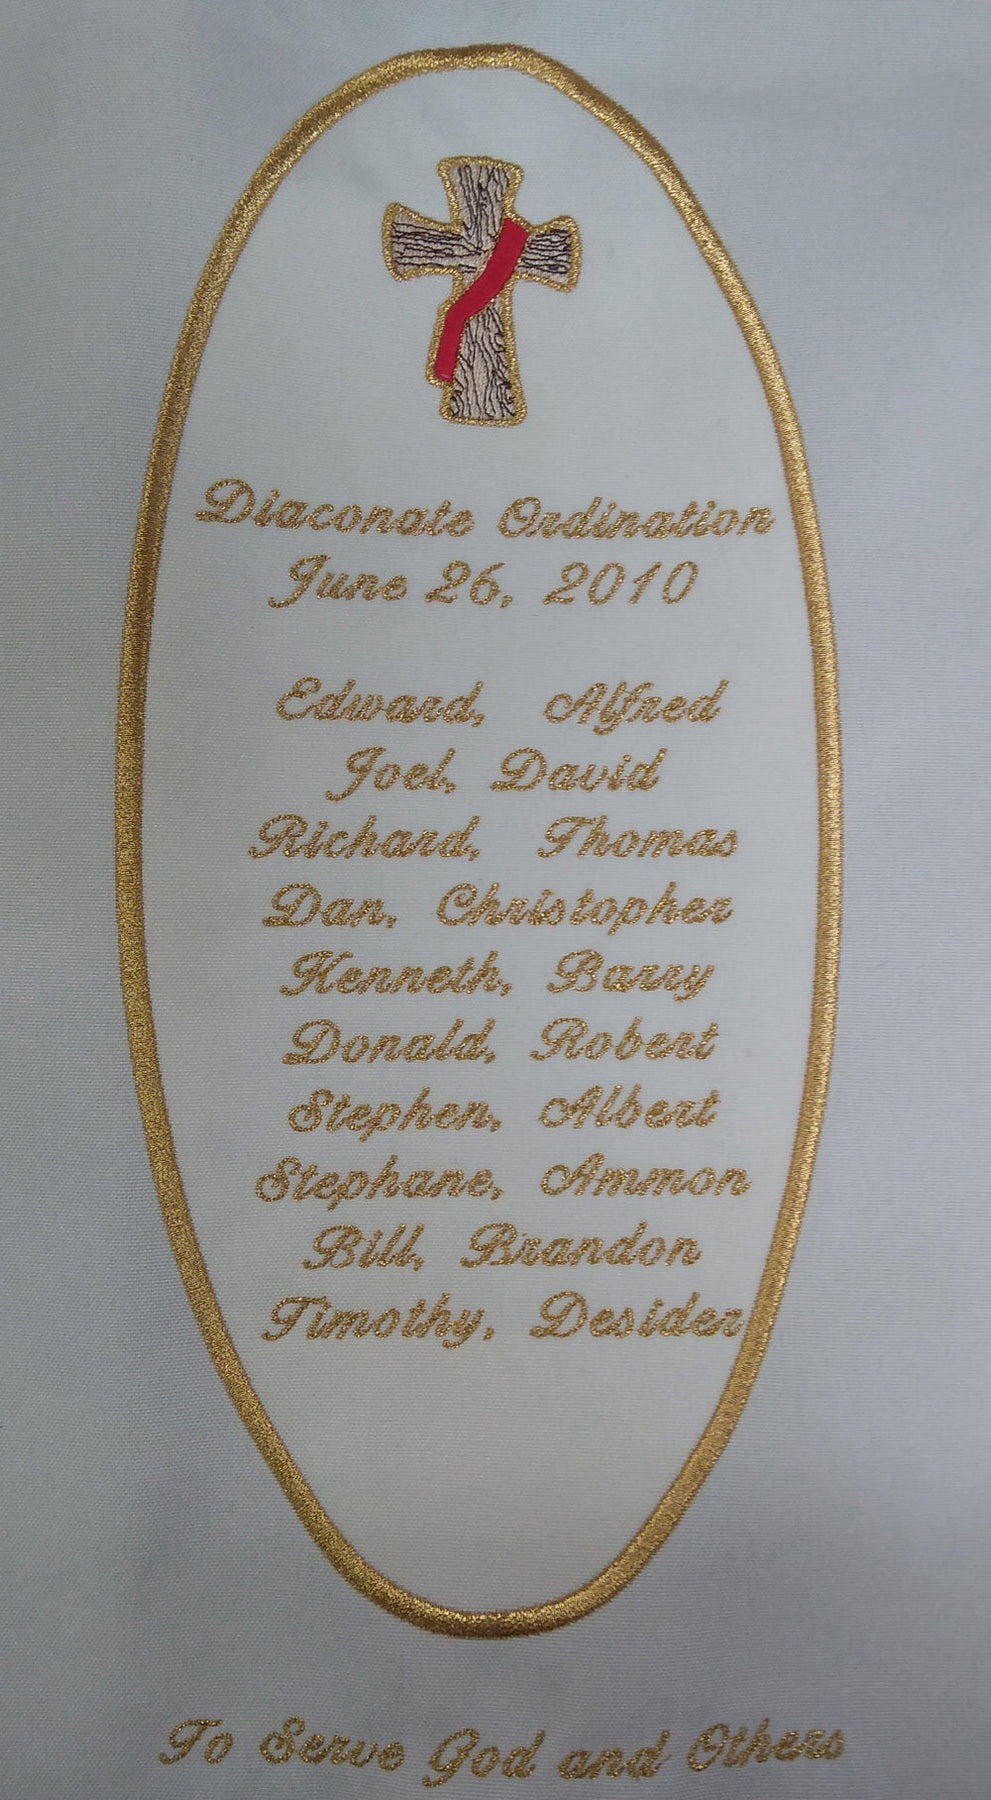 Diaconate Ordination
June 26, 2010
Edward, Alfred
Joel, David
Richard, Thomas
Dan, Christopher
Kenneth, Barry
Donald, Robert
Stephen, Albert
Stephane, Ammon
Bill, Brandon
Timothy, Desider
To Serve God and Others